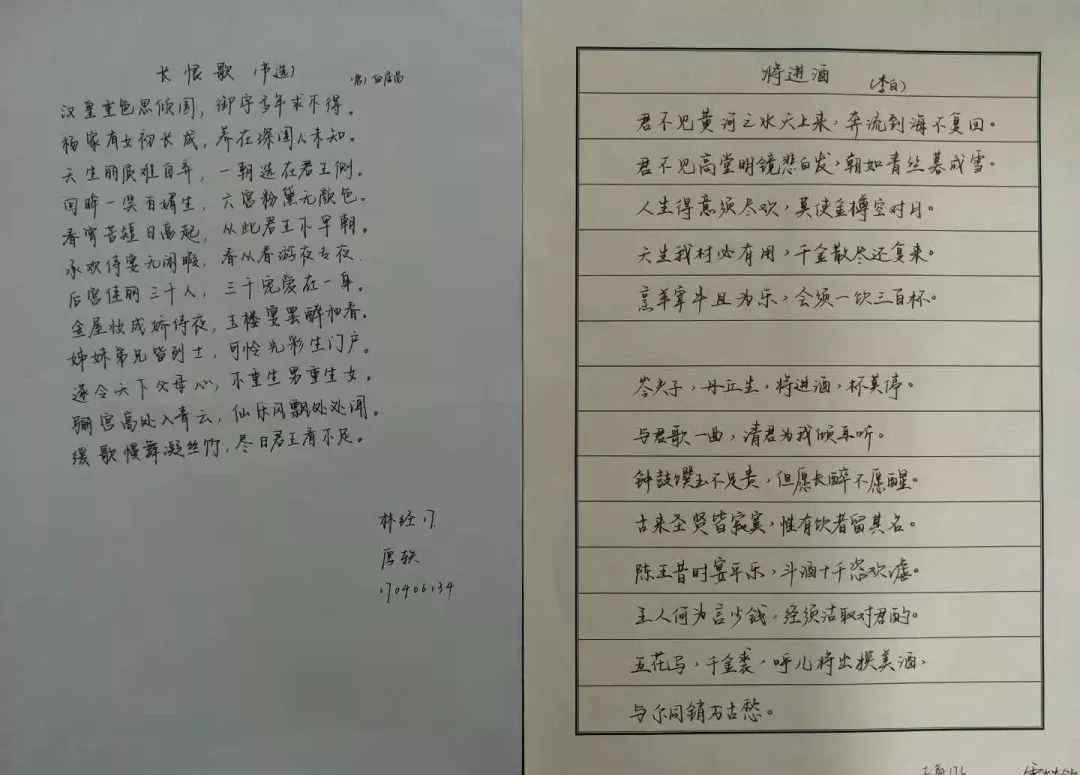 长恨歌（节选）
（唐）白居易
汉皇重色思倾国，御宇多年求不得。
杨家有女初长成，养在深闺人未知。
天生丽质难自弃，一朝选在君王侧。
回眸一笑百媚生，六宫粉黛无颜色。
春宵苦短日高起，从此君王不早朝。
承欢侍宴无闲暇，春从春游夜专夜.
后宫佳丽三千人，三千宠爱在一身。
金屋妆成娇侍夜，玉楼宴罢醉和春。
姊妹弟兄皆列土，可怜光彩生门户。
遂令天下父母心，不重生男重生女。
骊宫高处入青云，仙乐风飘处处闻。
缓歌慢舞凝丝竹，尽日君王看不足。
林经17
唐轶
170406134
将进酒
（李白）
君不见黄河之水天上来，奔流到海不复回。
君不见高堂明镜悲白发，朝如青丝暮成雪。
人生得意须尽欢，莫使金樽空对月。
天生我材必有用，千金散尽还复来。
烹羊宰牛且为乐，会须一饮三百杯。
岑夫子，丹丘生，将进酒，杯莫停。
与君歌一曲，请君为我倾耳听。
钟鼓馔玉不足贵，但愿长醉不愿醒。
古来圣贤皆寂寞，惟有饮者留其名。
陈王昔时宴平乐，斗酒十千恣欢谑。
主人何为言少钱，径须沽取对君酌。
五花马，千金裘，呼儿将出换美酒，
与尔同销万古愁。